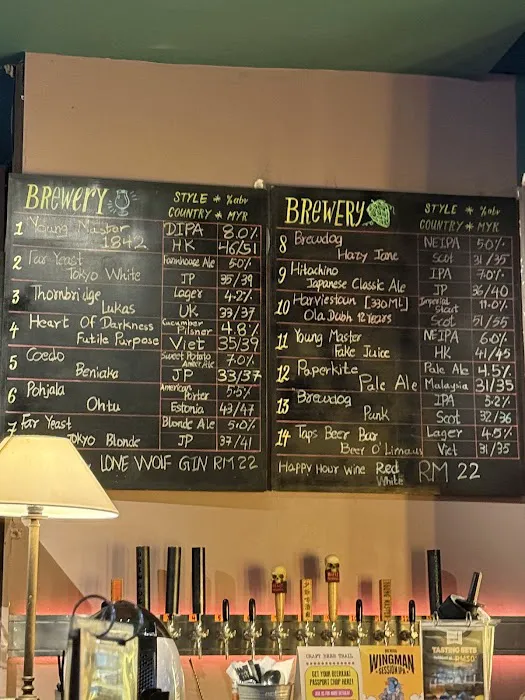 BREWERY STYLE * %abv
COUNTRY * MYR
1 Young Master DIPA 8.0%
1842 HK 46/51
2 Far Yeast Farmhouse Ale 5.0%
Tokyo White JP 35/39
3 Thornbridge Lager 4.2%
Lukas UK 33/37
4 Heart Of Darkness Cucumber Pilsner 4.8%
Futile Purpose Viet 35/39
5 Coedo Sweet Potato Amber Ale 7.0%
Beniaka JP 33/37
6 Pohjala American Porter 5.5%
Ohtu Estonia 43/47
7 Far Yeast Blonde Ale 5.0%
Tokyo Blonde JP 37/41
LONE WOLF GIN RM 22
BREWERY STYLE * %abv
COUNTRY * MYR
8 Brewdog NEIPA 5.0%
Hazy Jane Scot 31/35
9 Hitachino IPA 7.0%
Japanese Classic Ale JP 36/40
10 Harviestoun [330ML] Imperial Stout 11.0%
Ola Dubh 12 Years Scot 51/55
11 Young Master NEIPA 6.0%
Fake Juice HK 41/45
12 Paperkite Pale Ale 4.5%
Pale Ale Malaysia 31/35
13 Brewdog IPA 5.2%
Punk Scot 32/36
14 Taps Beer Bar Lager 4.5%
Beer O'Limaus Viet 31/35
HAPPY HOUR WINE Red White RM 22
CRAFT BEER TRAIL
GET YOUR BEERKAKI
PASSPORT STAMP HERE!
WINGMAN
SESSION IPA
TASTING SETS
RM50